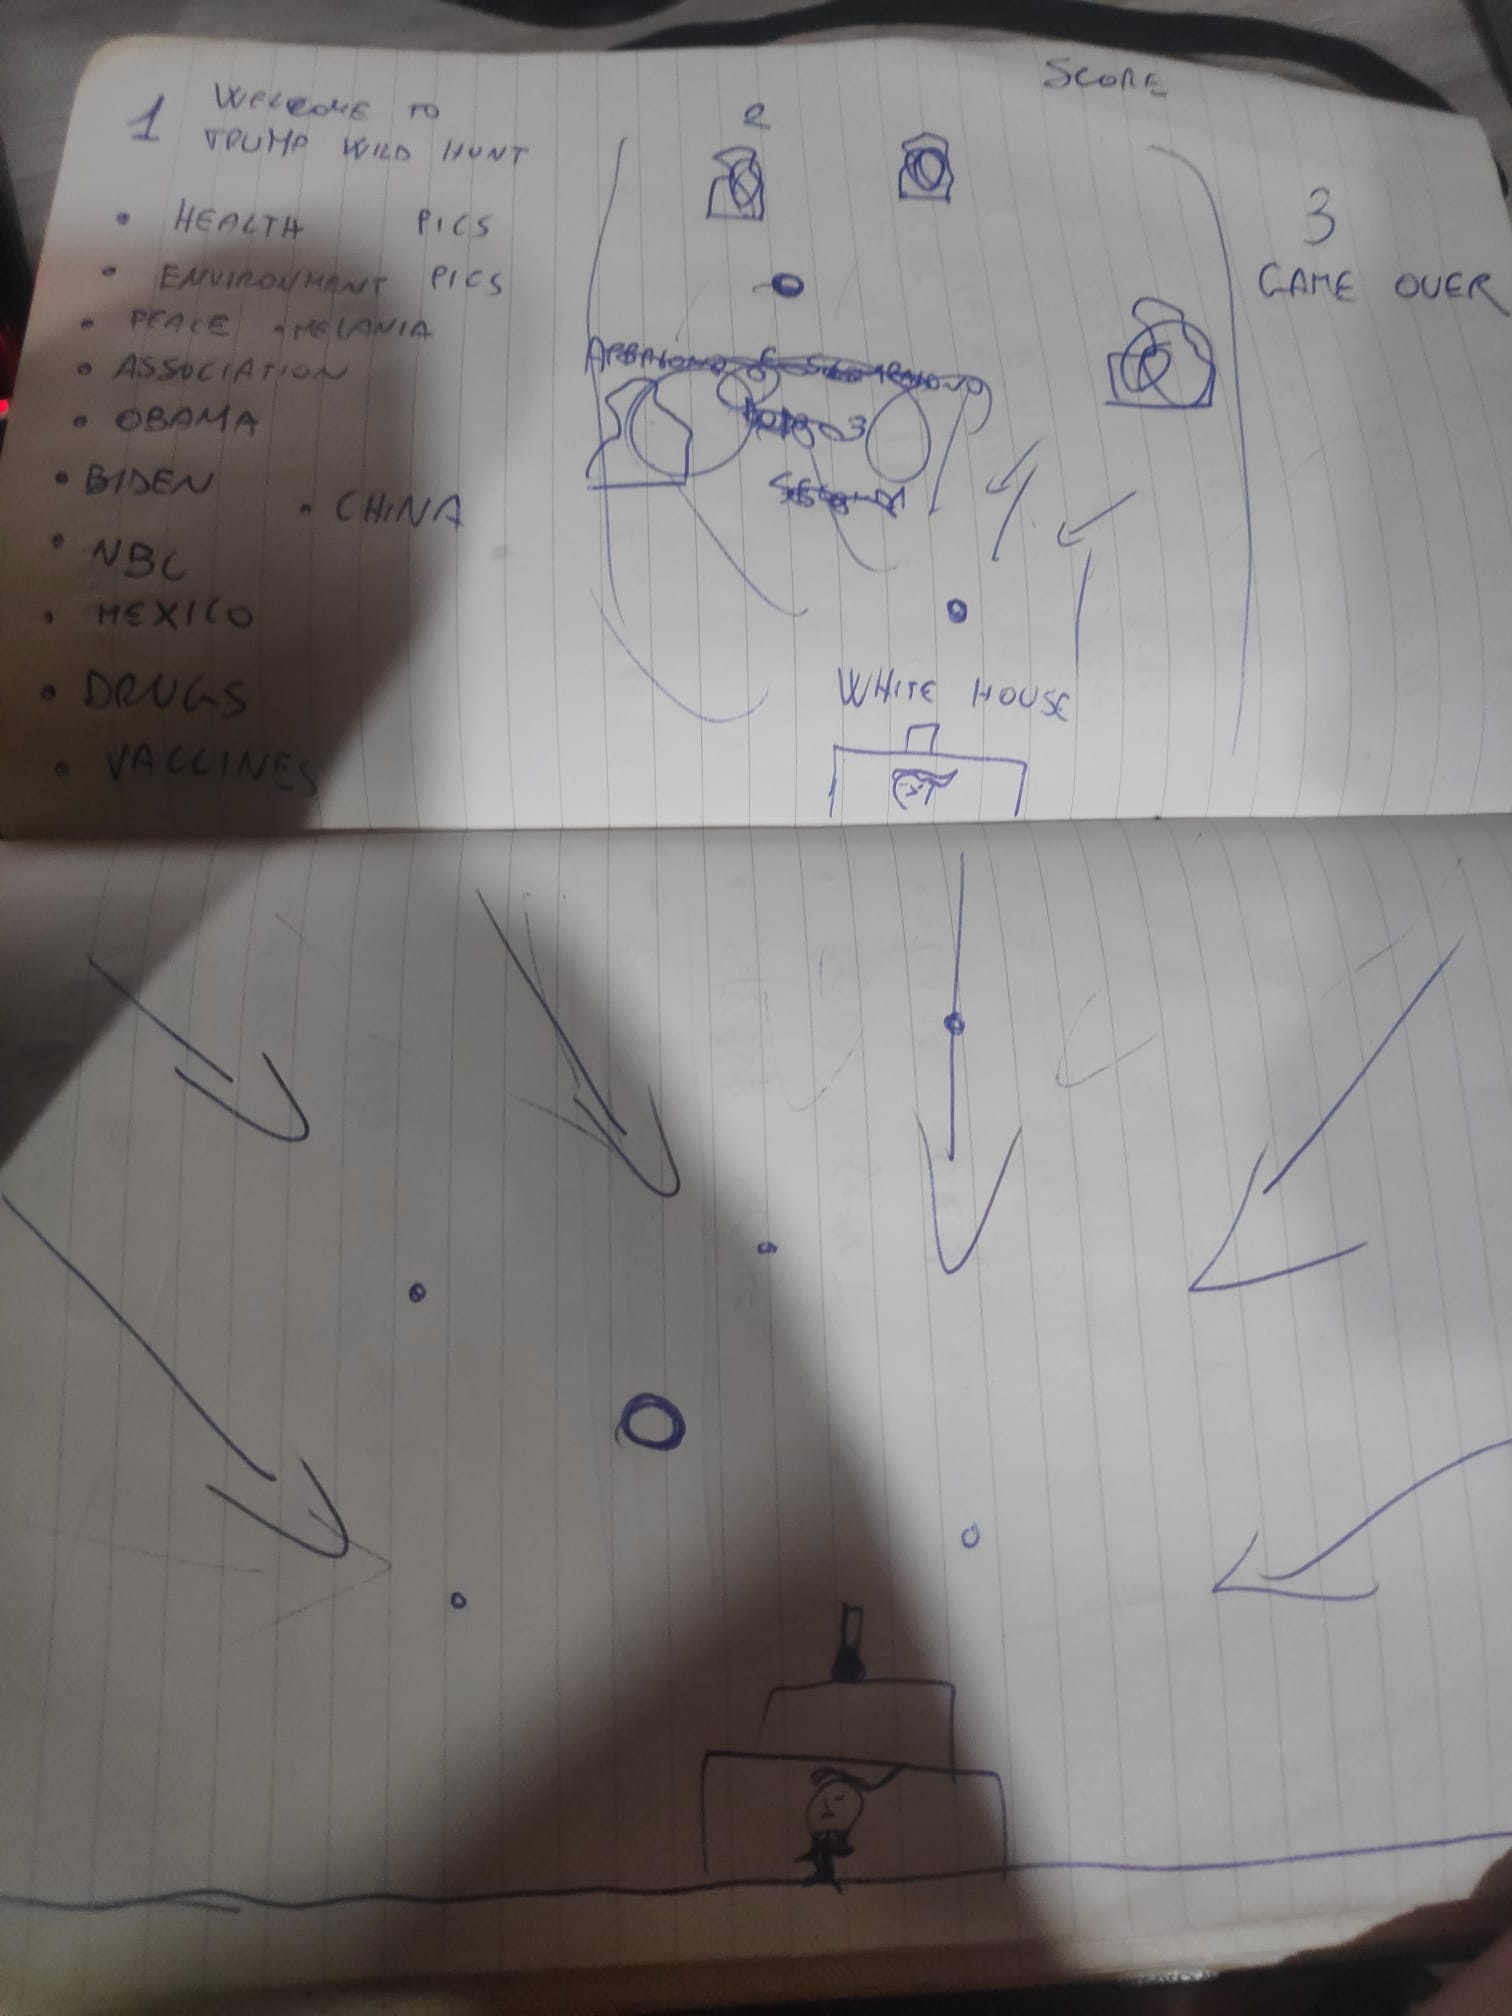 1
WELCOME TO
TRUMP WILD HUNT
• HEALTH PICS
• ENVIRONMENT PICS
• PEACE • MELANIA
• ASSOCIATION
• OBAMA
• BIDEN
• CHINA
• NBC
• MEXICO
• DRUGS
• VACCINES
2
SCORE
WHITE HOUSE
3
GAME OVER